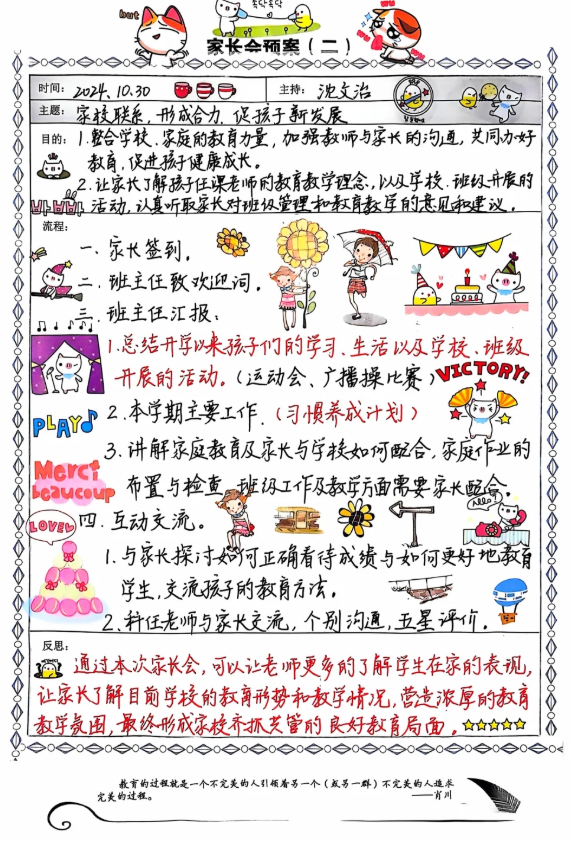 but
톡닥톡닥
wu
wu
wu
家长会预案（二）
时间：2024.10.30
主持：沈文治
主题：家校联系，形成合力，促孩子新发展
目的：1.整合学校、家庭的教育力量，加强教师与家长的沟通，共同办好
教育，促进孩子健康成长。
2.让家长了解孩子任课老师的教育教学理念，以及学校、班级开展的
活动，认真听取家长对班级管理和教育教学的意见和建议。
流程：
一、家长签到。
二、班主任致欢迎词。
三、班主任汇报：
1.总结开学以来孩子们的学习、生活以及学校、班级
开展的活动。（运动会、广播操比赛）
VICTORY!
PLAY
2.本学期主要工作.（习惯养成计划）
3.讲解家庭教育及家长与学校如何配合，家庭作业的
Merci
beaucoup
布置与检查，班级工作及教学方面需要家长配合
hello
LOVELY
四、互动交流。
1.与家长探讨如何正确看待成绩与如何更好地教育
学生，交流孩子的教育方法。
2.科任老师与家长交流，个别沟通，五星评价。
反思：
通过本次家长会，可以让老师更多的了解学生在家的表现，
让家长了解目前学校的教育形势和教学情况，营造浓厚的教育
教学氛围，最终形成家校齐抓共管的良好教育局面。
教育的过程就是一个不完美的人引领着另一个（或另一群）不完美的人追求
完美的过程。
——肖川